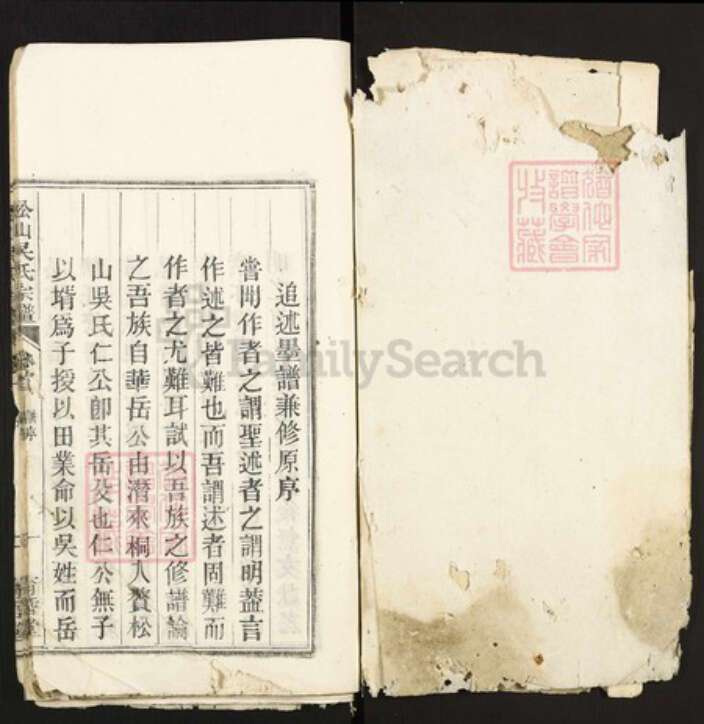 追述墨譜兼修原序
嘗聞作者之謂聖述者之謂明蓋言
作述之皆難也而吾謂述者固難而
作者之尤難耳試以吾族之修譜論
之吾族自華岳公由潛來桐入贅松
山吳氏仁公卽其岳父也仁公無子
以壻爲子授以田業命以吳姓而岳
松山吳氏宗譜
卷首
FamilySearch
譜學會
特藏